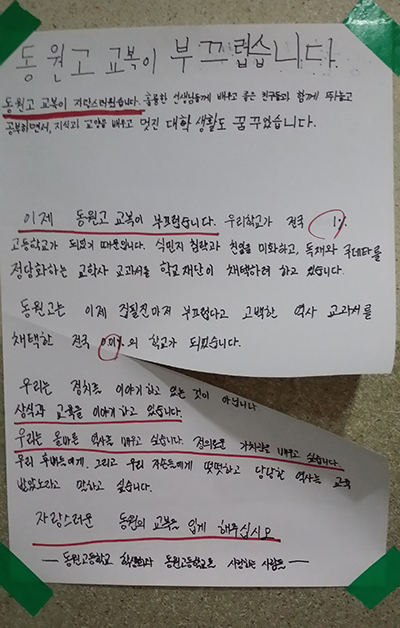 동원고 교복이 부끄럽습니다.
동원고 교복이 자랑스러웠습니다. 훌륭한 선생님들께 배우고 좋은 친구들과 함께 뛰놀고
공부하면서, 지식과 교양을 배우고 멋진 대학 생활도 꿈꾸었습니다.
이제 동원고 교복이 부끄럽습니다. 우리학교가 전국 1%
고등학교가 되었기 때문입니다. 식민지 침략과 친일을 미화하고, 독재와 쿠데타를
정당화하는 교학사 교과서를 학교재단이 채택하려 하고 있습니다.
동원고는 이제 집필진마저 부끄럽다고 고백한 역사 교과서를
채택한 전국 0.01%의 학교가 되었습니다.
우리는 정치를 이야기하고 있는 것이 아닙니다
상식과 교육을 이야기하고 있습니다.
우리는 올바른 역사를 배우고 싶습니다. 정의로운 가치관을 배우고 싶습니다.
우리 후배들에게, 그리고 우리 자손들에게 떳떳하고 당당한 역사를 교육
받았노라고 말하고 싶습니다.
자랑스러운 동원의 교복을 입게 해주십시오
- 동원고등학교 학생회와 동원고등학교를 사랑하는 사람들 -